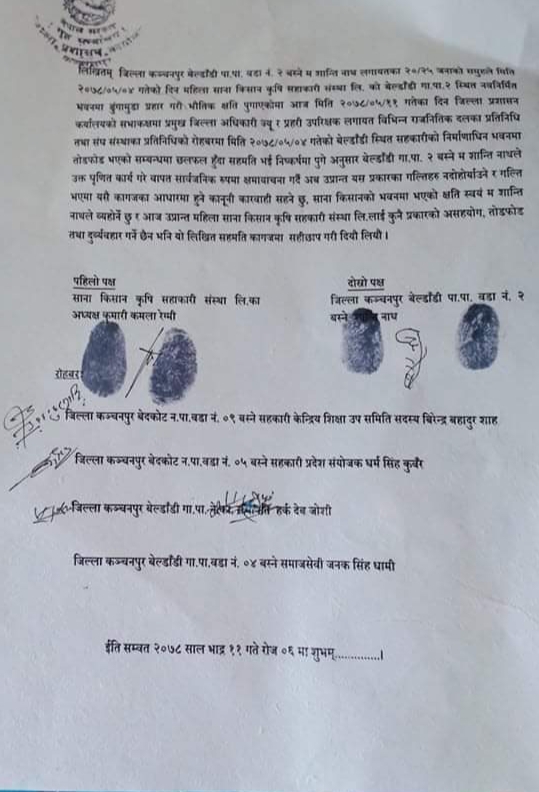 नेपाल सरकार
गृह मन्त्रालय
लिखितम् जिल्ला कञ्चनपुर बेल्डाँडी पा.पा. वडा नं. २ बस्ने म शान्ति नाथ लगायतका २०/२५ जनाको समुहले मिति
२०७८/०५/०४ गतेका दिन महिला साना किसान कृषि सहाकारी संस्था लि. को बेल्डाँडी गा.पा.२ स्थित नवनिर्मित
भवनमा ढुंगामुढा प्रहार गरी भौतिक क्षति पुगाएकोमा आज मिति २०७८/०५/११ गतेका दिन जिल्ला प्रशासन
कार्यालयको सभाकक्षमा प्रमुख जिल्ला अधिकारी ज्यू र प्रहरी उपरिक्षक लगायत विभिन्न राजनितिक दलका प्रतिनिधि
तथा संघ संस्थाका प्रतिनिधिको रोहवरमा मिति २०७८/०५/०४ गतेको बेल्डाँडी स्थित सहकारीको निर्माणाधिन भवनमा
तोडफोड भएको सम्बन्धमा छलफल हुँदा सहमति भई निष्कर्षमा पुगे अनुसार बेल्डाँडी गा.पा. २ बस्ने म शान्ति नाथले
उक्त घृणित कार्य गरे वापत सार्वजनिक रुपमा क्षमायाचना गर्दै अब उप्रान्त यस प्रकारका गल्तिहरु नदोहोर्याउने र गल्ति
भएमा यसै कागजका आधारमा हुने कानूनी कारवाही सहने छु, साना किसानको भवनमा भएको क्षति स्वयं म शान्ति
नाथले व्यहोर्ने छु र आज उप्रान्त महिला साना किसान कृषि सहकारी संस्था लि.लाई कुनै प्रकारको असहयोग, तोडफोड
तथा दुर्व्यवहार गर्ने छैन भनि यो लिखित सहमति कागजमा सहीछाप गरी दियौं लियौं।
पहिलो पक्ष
साना किसान कृषि सहाकारी संस्था लि.का
अध्यक्ष कुमारी कमला रेग्मी
दोस्रो पक्ष
जिल्ला कञ्चनपुर बेल्डाँडी पा.पा. वडा नं. २
बस्ने नाथ
रोहबर
जिल्ला कञ्चनपुर बेदकोट न.पा.वडा नं. ०९ बस्ने सहकारी केन्द्रिय शिक्षा उप समिति सदस्य बिरेन्द्र बहादुर शाह
जिल्ला कञ्चनपुर बेदकोट न.पा.वडा नं. ०५ बस्ने सहकारी प्रदेश संयोजक धर्म सिंह कुवँर
जिल्ला कञ्चनपुर बेल्डाँडी गा.पा. हर्क देव जोशी
जिल्ला कञ्चनपुर बेल्डाँडी गा.पा.वडा नं. ०४ बस्ने समाजसेवी जनक सिंह धामी
ईति सम्वत २०७८ साल भाद्र ११ गते रोज ०६ मा शुभम्..............।